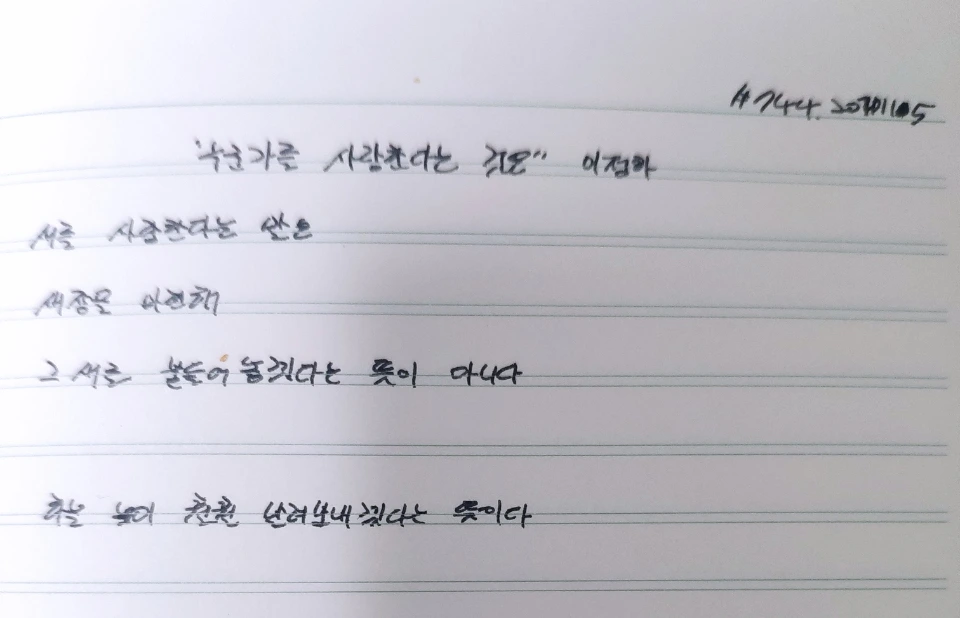 #744. 20201105
"누군가를 사랑한다는 것은" 이정하
새를 사랑한다는 말은
새장을 마련해
그 새를 붙들어 놓겠다는 뜻이 아니다
하늘 높이 훨훨 날려보내겠다는 뜻이다